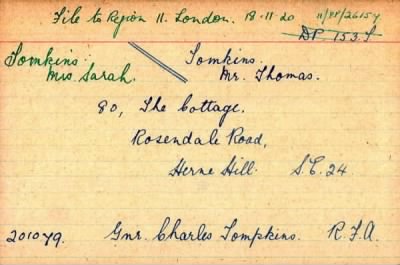 File to Region 11. London. 18.11.20 11/PP/2615y
DP. 153.T
Tomkins Mrs Sarah.
Tomkins. Mr. Thomas.
80, The Cottage,
Rosendale Road,
Herne Hill. S.E.24
201079. Gnr. Charles Tompkins. R.F.A.